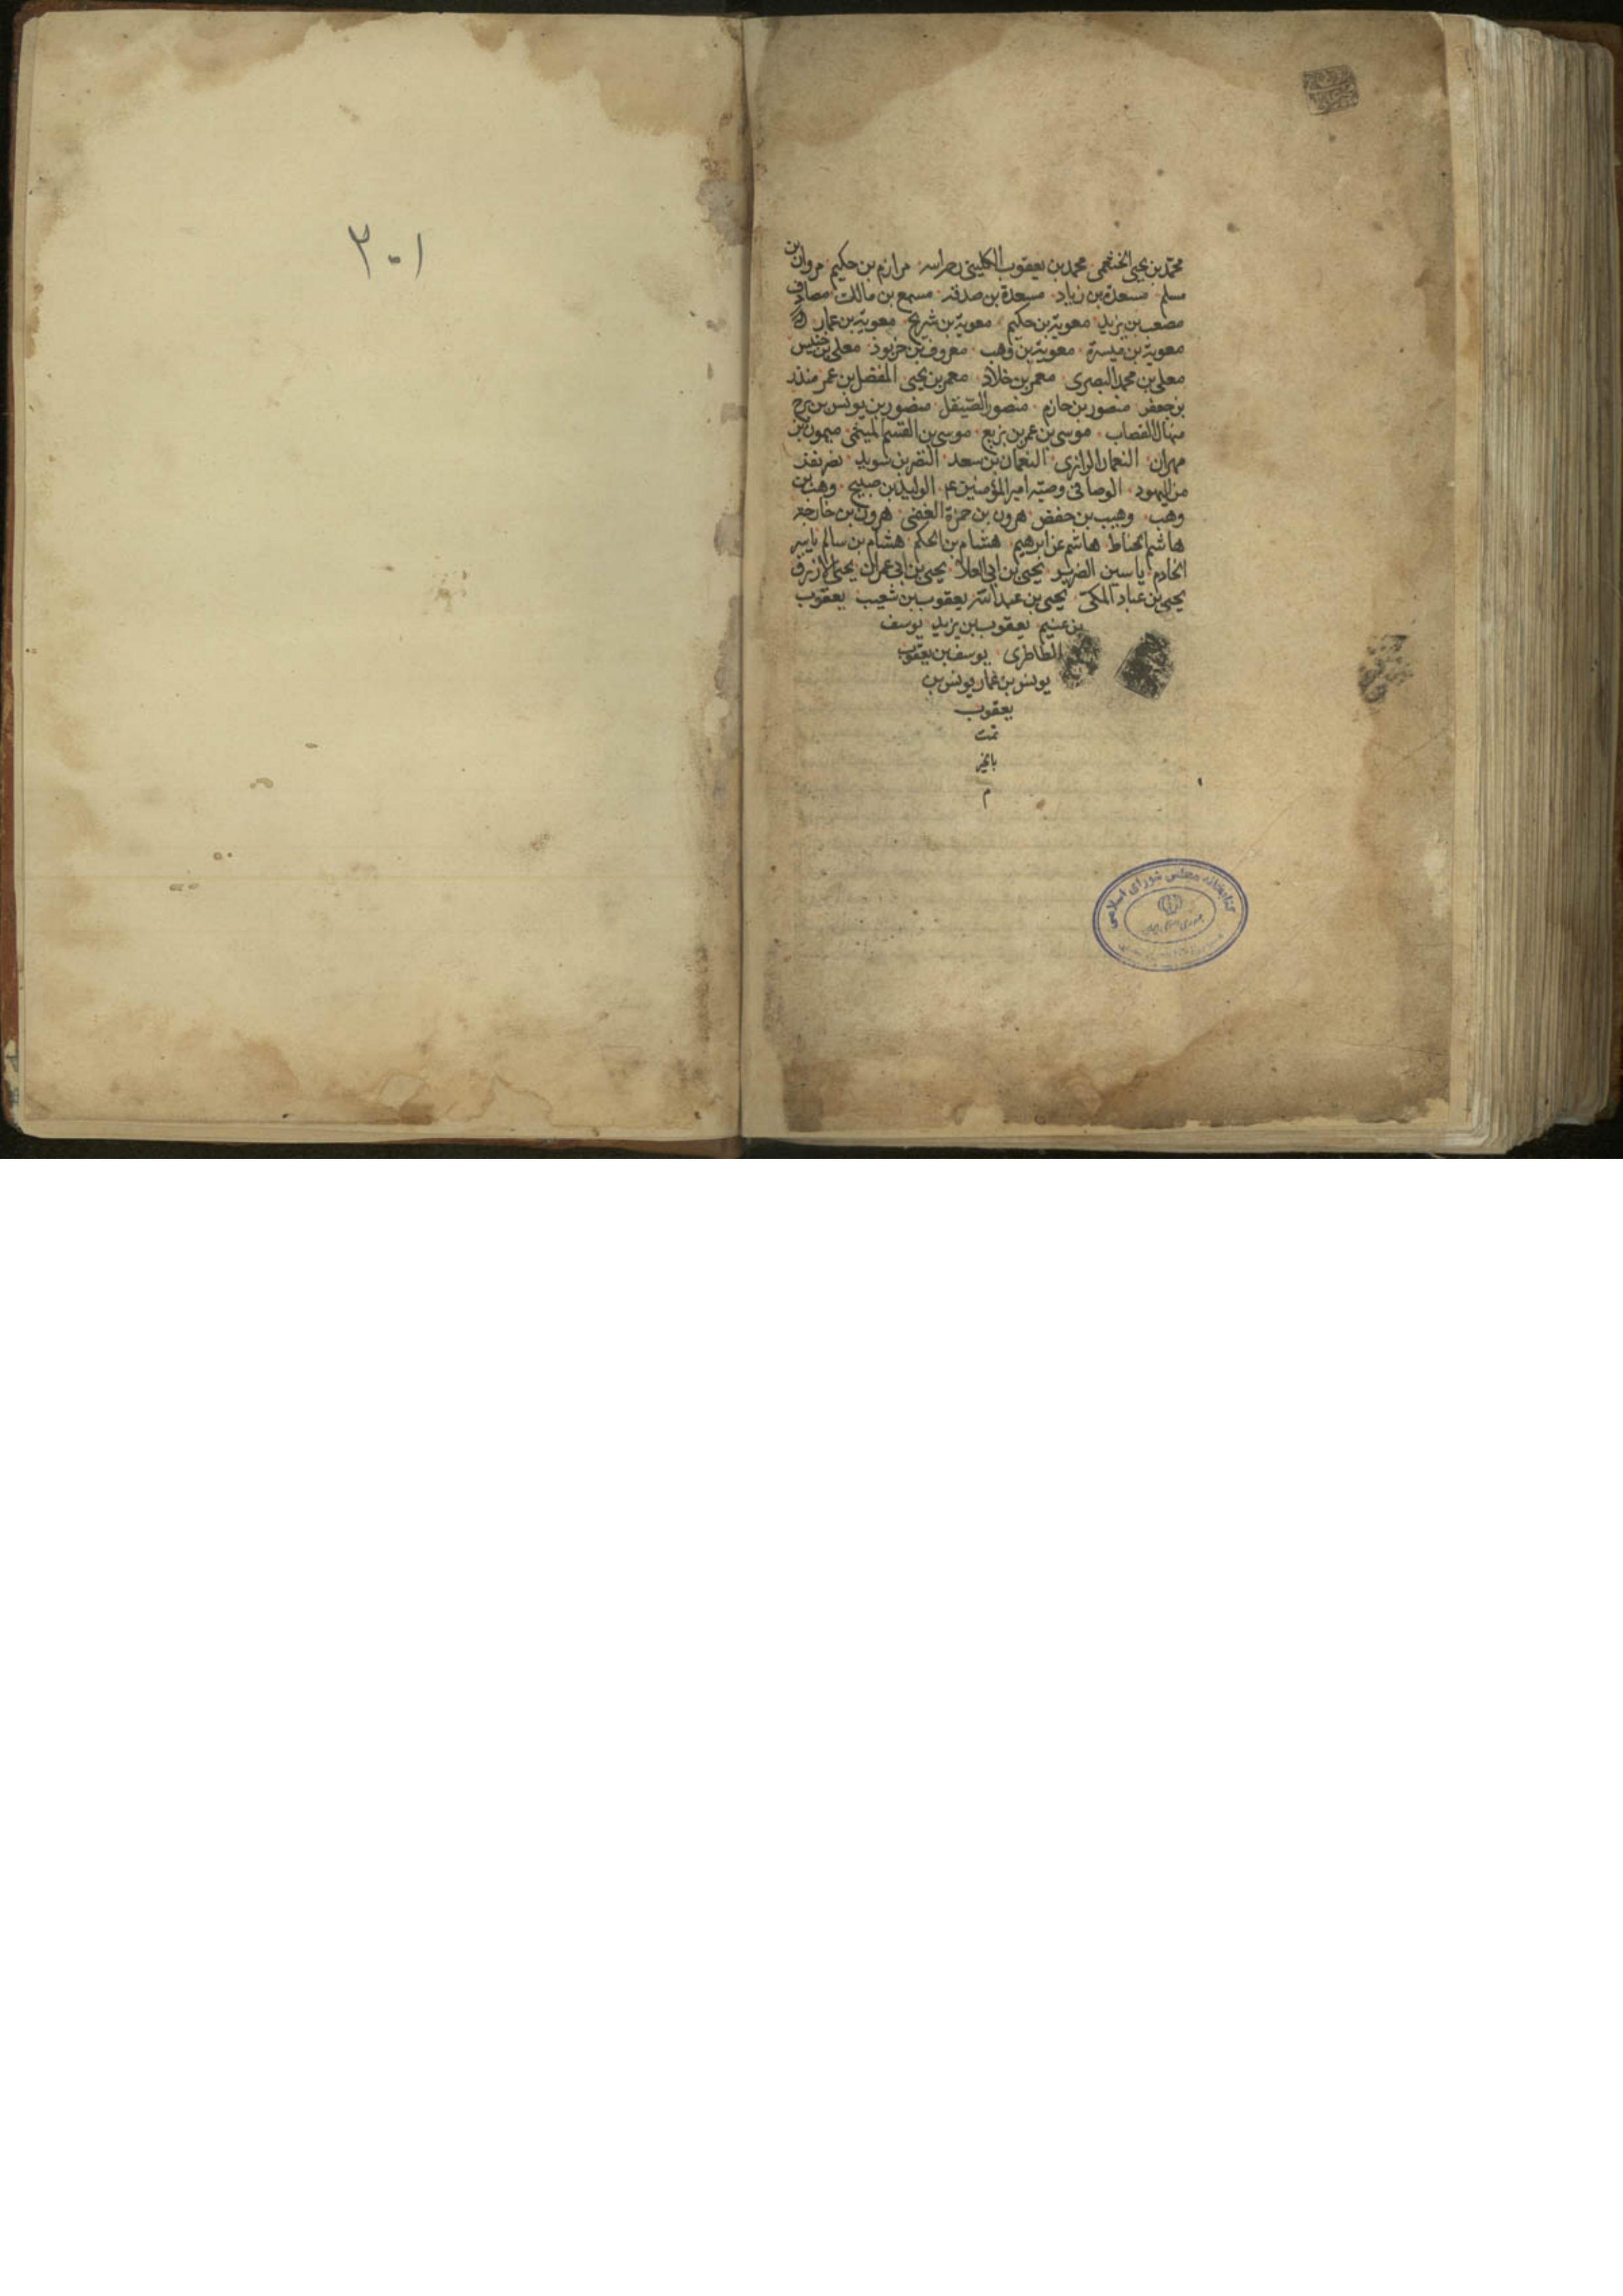 محمد بن يحيى الخثعمى محمد بن يعقوب الكلينى رحمه الله مرازم بن حكيم مروان بن
مسلم مسعدة بن زياد مسعدة بن صدقة مسمع بن مالك مصادف
مصعب بن يزيد معوية بن حكيم معوية بن شريح معوية بن عمار
معوية بن ميسرة معوية بن وهب معروف بن خربوذ معلى بن خنيس
معلى بن محمد البصرى معمر بن خلاد معمر بن يحيى المفضل بن عمر منذر
بن جعفر منصور بن حازم منصور الصيقل منصور بن يونس بن برج
منهال القصاب موسى بن عمر بن بزيع موسى بن القسم الميخى ميمون بن
مهران النعمان الرازى النعمان بن سعد النضر بن سويد نضر نفر
من اليهود الوصافى وصية امير المؤمنين ع الوليد بن صبيح وهب بن
وهب وهيب بن حفص هرون بن حمزة الغنوى هرون بن خارجة
هاشم الحناط هاشم بن ابرهيم هشام بن الحكم هشام بن سالم ياسر
الخادم ياسين الضرير يحيى بن ابى العلا يحيى بن ابى عمران يحيى الازرق
يحيى بن عباد المكى يحيى بن عبد الله يعقوب بن شعيب يعقوب
بن عثيم يعقوب بن يزيد يوسف
الطاطرى يوسف بن يعقوب
يونس بن عمار يونس بن
يعقوب
تمت
بالخير
م
كتابخانه مجلس شوراى اسلامى
٣٠١